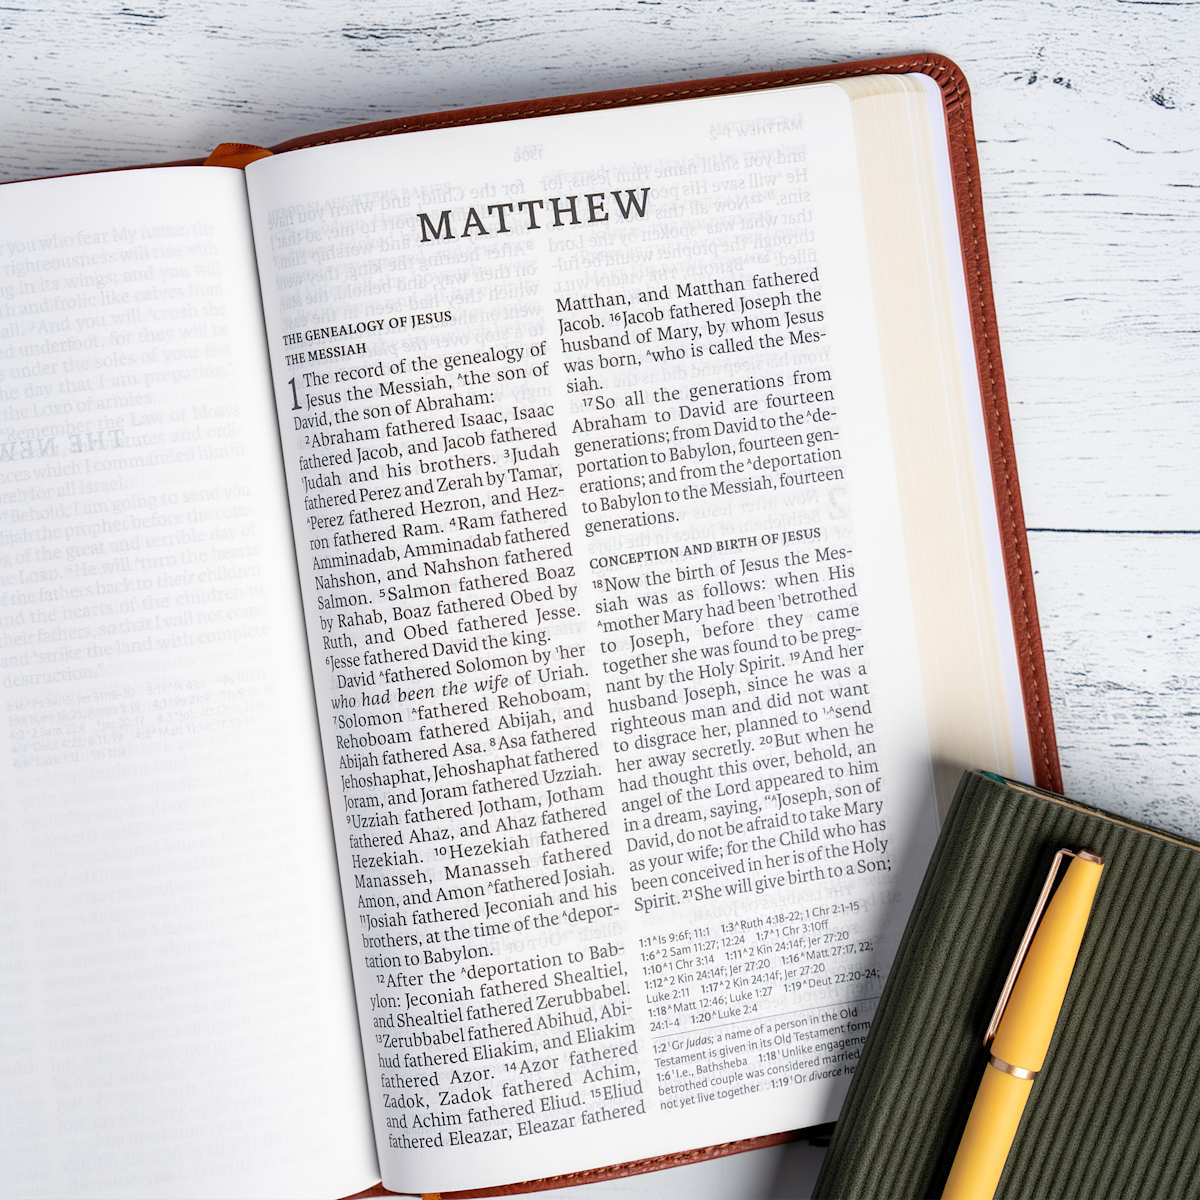 you who fear My name, the
righteousness will rise with
in its wings; and you will
and frolic like calves from
³And you will crush the
underfoot, for they will be
under the soles of your
day that I am preparing,"
the LORD of armies.
"Remember the Law of Moses
which I commanded him
for all Israel.
"Behold, I am going to send you
the prophet before the
of the great and terrible day of
LORD. ⁶He will turn the hearts
of the fathers back to their children
and the hearts of the children to
their fathers, so that I will not
and strike the land with complete
destruction."
MATTHEW
THE GENEALOGY OF JESUS
THE MESSIAH
1 The record of the genealogy of
Jesus the Messiah, ᴬthe son of
David, the son of Abraham:
²Abraham fathered Isaac, Isaac
fathered Jacob, and Jacob fathered
¹Judah and his brothers. ³Judah
fathered Perez and Zerah by Tamar,
ᴬPerez fathered Hezron, and Hez-
ron fathered Ram. ⁴Ram fathered
Amminadab, Amminadab fathered
Nahshon, and Nahshon fathered
Salmon. ⁵Salmon fathered Boaz
by Rahab, Boaz fathered Obed by
Ruth, and Obed fathered Jesse.
⁶Jesse fathered David the king.
David ᴬfathered Solomon by ¹her
who had been the wife of Uriah.
⁷Solomon ᴬfathered Rehoboam,
Rehoboam fathered Abijah, and
Abijah fathered Asa. ⁸Asa fathered
Jehoshaphat, Jehoshaphat fathered
Joram, and Joram fathered Uzziah.
⁹Uzziah fathered Jotham, Jotham
fathered Ahaz, and Ahaz fathered
Hezekiah. ¹⁰Hezekiah fathered
Manasseh, Manasseh fathered
Amon, and Amon ᴬfathered Josiah.
¹¹Josiah fathered Jeconiah and his
brothers, at the time of the ᴬdepor-
tation to Babylon.
¹²After the ᴬdeportation to Bab-
ylon: Jeconiah fathered Shealtiel,
and Shealtiel fathered Zerubbabel.
¹³Zerubbabel fathered Abihud, Abi-
hud fathered Eliakim, and Eliakim
fathered Azor. ¹⁴Azor fathered
Zadok, Zadok fathered Achim,
and Achim fathered Eliud. ¹⁵Eliud
fathered Eleazar, Eleazar fathered
Matthan, and Matthan fathered
Jacob. ¹⁶Jacob fathered Joseph the
husband of Mary, by whom Jesus
was born, ᴬwho is called the Mes-
siah.
¹⁷So all the generations from
Abraham to David are fourteen
generations; from David to the ᴬde-
portation to Babylon, fourteen gen-
erations; and from the ᴬdeportation
to Babylon to the Messiah, fourteen
generations.
CONCEPTION AND BIRTH OF JESUS
¹⁸Now the birth of Jesus the Mes-
siah was as follows: when His
ᴬmother Mary had been ¹betrothed
to Joseph, before they came
together she was found to be preg-
nant by the Holy Spirit. ¹⁹And her
husband Joseph, since he was a
righteous man and did not want
to disgrace her, planned to ¹,ᴬsend
her away secretly. ²⁰But when he
had thought this over, behold, an
angel of the Lord appeared to him
in a dream, saying, "ᴬJoseph, son of
David, do not be afraid to take Mary
as your wife; for the Child who has
been conceived in her is of the Holy
Spirit. ²¹She will give birth to a Son;
1:1 ᴬIs 9:6f; 11:1 1:3 ᴬRuth 4:18-22; 1 Chr 2:1-15
1:6 ᴬ2 Sam 11:27; 12:24 1:7 ᴬ1 Chr 3:10ff
1:10 ᴬ1 Chr 3:14 1:11 ᴬ2 Kin 24:14f; Jer 27:20
1:12 ᴬ2 Kin 24:14f; Jer 27:20 1:16 ᴬMatt 27:17, 22;
Luke 2:11 1:17 ᴬ2 Kin 24:14f; Jer 27:20
1:18 ᴬMatt 12:46; Luke 1:27 1:19 ᴬDeut 22:20-24;
24:1-4 1:20 ᴬLuke 2:4
1:2 ¹Gr Judas; a name of a person in the Old
Testament is given in its Old Testament form
1:6 ¹I.e., Bathsheba 1:18 ¹Unlike engagement
betrothed couple was considered married
not yet live together 1:19 ¹Or divorce her